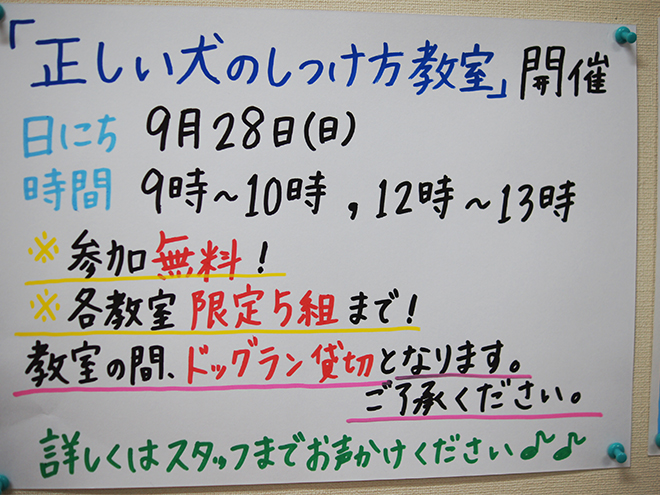 「正しい犬のしつけ方教室」開催
日にち 9月28日(日)
時間 9時～10時，12時～13時
※参加無料！
※各教室 限定5組まで！
教室の間、ドッグラン貸切となります。
ご了承ください。
詳しくはスタッフまでお声かけください♪♪